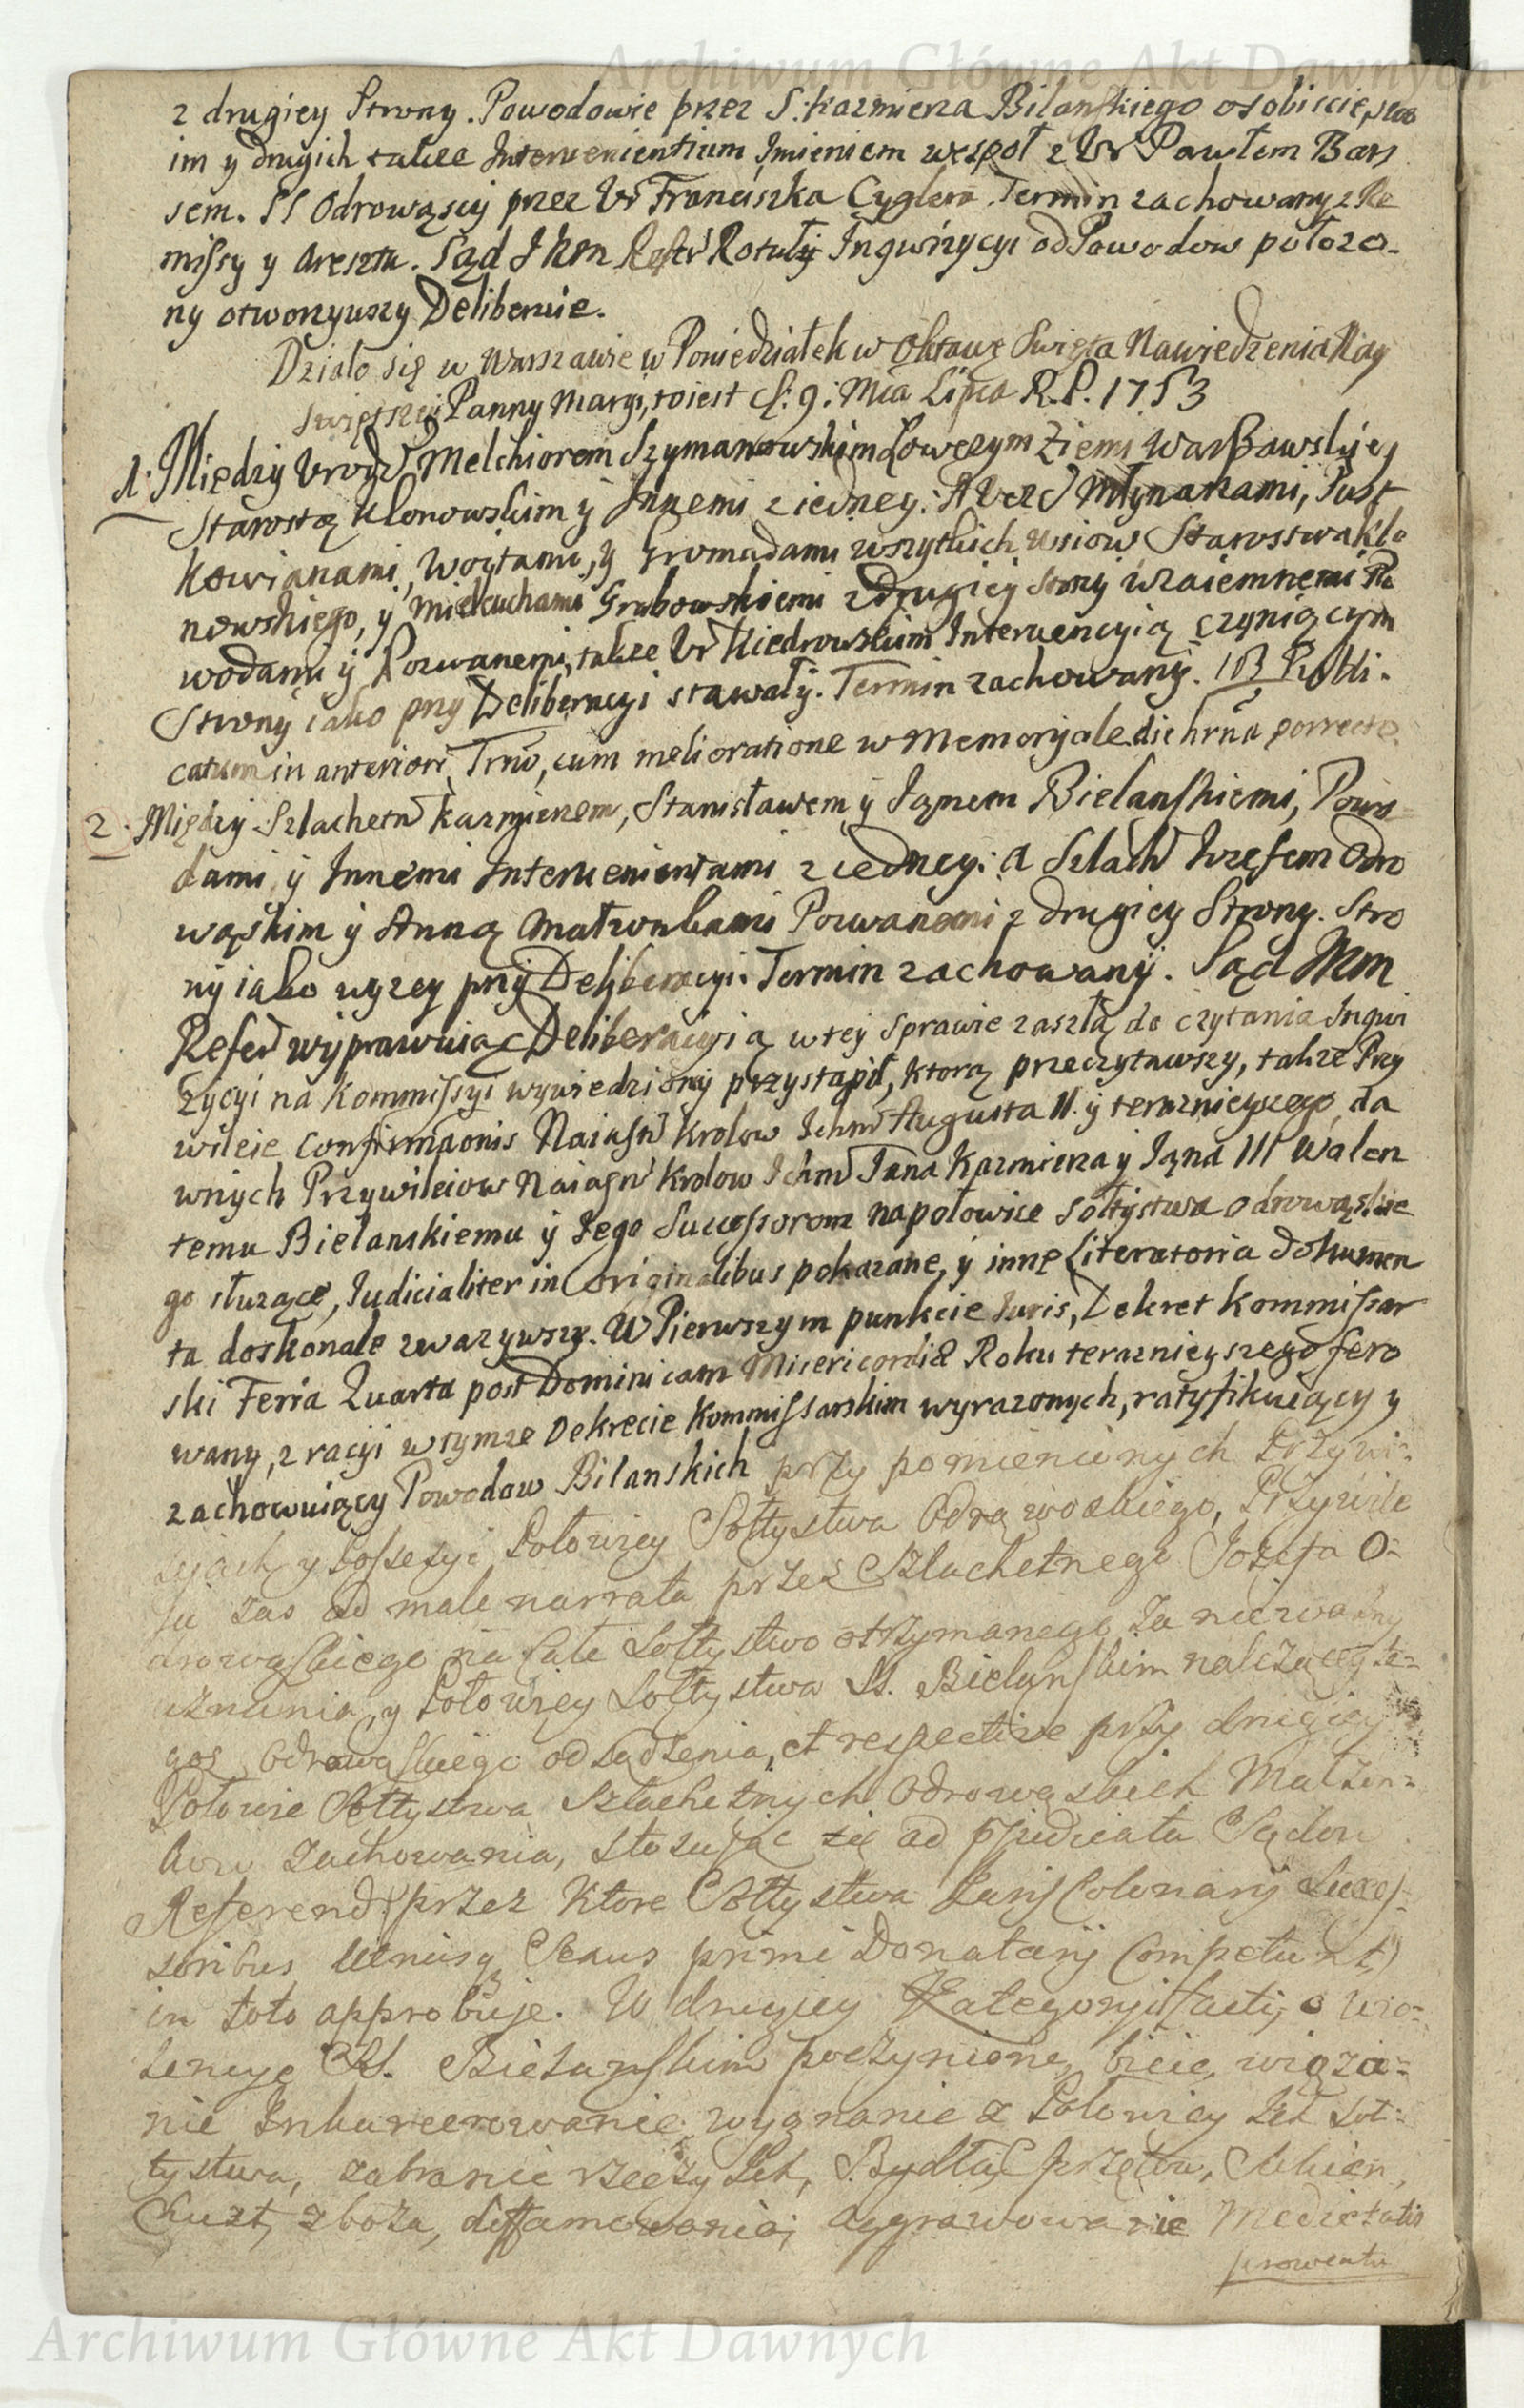 Archiwum Główne Akt Dawnych
z drugiey Strony. Powodowie przez S: Kazmierza Bilanskiego osobiscie, swo
im y drugich także Intervenientium Imieniem wespoł z Ur Pawłem Bars
sem. SS Odrowązcy przez Ur Franciszka Cyglera Termin zachowany z Re
missy y Aresztu. Sąd JKM Refer Rotuły Inqwizycyi od Powodow położo-
ny otworzywszy Deliberuie.
Działo się w Warszawie w Poniedziałek w Oktawę Swięta Nawiedzenia Nay
swiętszey Panny Maryi, to iest d: 9: Mca Lipca R.P. 1753
1. Między Urodz Melchiorem Szymanowskim Łowczym Ziemi Warszawskiey
Starostą Klonowskim y Innemi z iedney: A Ucz Młynarzami, Pust
kowianami, Woytami, y Gromadami wszytkich Wsiow Starostwa Klo
nowskiego, y Mielcuchami Grabowskiemi z drugiey Strony wzaiemnemi Po
wodami y Pozwanemi, także Ur Kiedrowskim Interwencyią czyniącym
Strony iako przy Deliberacyi stawały. Termin zachowany. NB Publi-
catum in anteriori Trno, cum melioratione w Memoryale die hrna porrecto.
2. Między Szlachetn Kazmierzem, Stanisławem y Janem Bielanskiemi, Powo-
dami y Innemi Interwenientami z iedney: A Szlach Iozefem Odro
wąskim y Anną Małżonkami Pozwanemi z drugiey Strony. Stro
ny iako wyzey przy Deliberacyi. Termin zachowany. Sąd JKM
Refer wyprawuiąc Deliberacyią w tey sprawie zaszłą do czytania Inqwi
zycyi na Kommissyi wywiedziony przystąpił, ktorą przeczytawszy, także Przy
wileie Confirmaonis Naiasn Krolow Ichm Augusta II. y teraznieyszego, da
wnych Przywileiow Naiasn Krolow Ichm Jana Kazmierza y Jana III Walen
temu Bielanskiemu y Iego Successorom na połowice Sołtystwa Odrowąskie
go służące, Iudicialiter in Originalibus pokazane, y inne Literatoria dokumen
ta doskonale zważywszy. W Pierwszym punkcie Iuris, Dekret Kommissar
ski Feria Quarta post Dominicam Misericordiæ Roku teraznieyszego fero
wany, z racyi w tymże Dekrecie Kommissarskim wyrazonych, ratyfikuiący y
zachowuiący Powodow Bilanskich przy pomienionych Przywi-
leiach y Possesyi Połowicy Sołtystwa Odrawoskiego, Przywile
iu zas ad male narrata przez Szlachetnego Jozefa O-
drowąskiego na całe Sołtystwo otrzymanego za nieważny
uznania, y Połowicy Sołtystwa SS. Bielanskim należącey te-
goż Odrowąskiego odsądzenia, et respective przy drugiey
Połowie Sołtystwa Szlachetnych Odrowąskich Małżon-
kow zachowania, stosując się ad prjudicata Sądow
Referend: (przez ktore Sołtystwa Juris Colonarij Succes-
soribus utriusq Sexus primi Donatarij Competunt)
in toto approbuje. W drugiey Kategoryi facti, o wio-
lencye SS. Bielanskim poczynione, bicie, wiąza-
nie Inkarcerowanie, wygnanie z Połowicy Ich Soł-
tystwa, zabranie rzeczy Ich, Bydła, Sprzętu, Sukien,
Chust, zboża, diffamowanie, aggrawowanie Medietatis
prowentu
Archiwum Główne Akt Dawnych